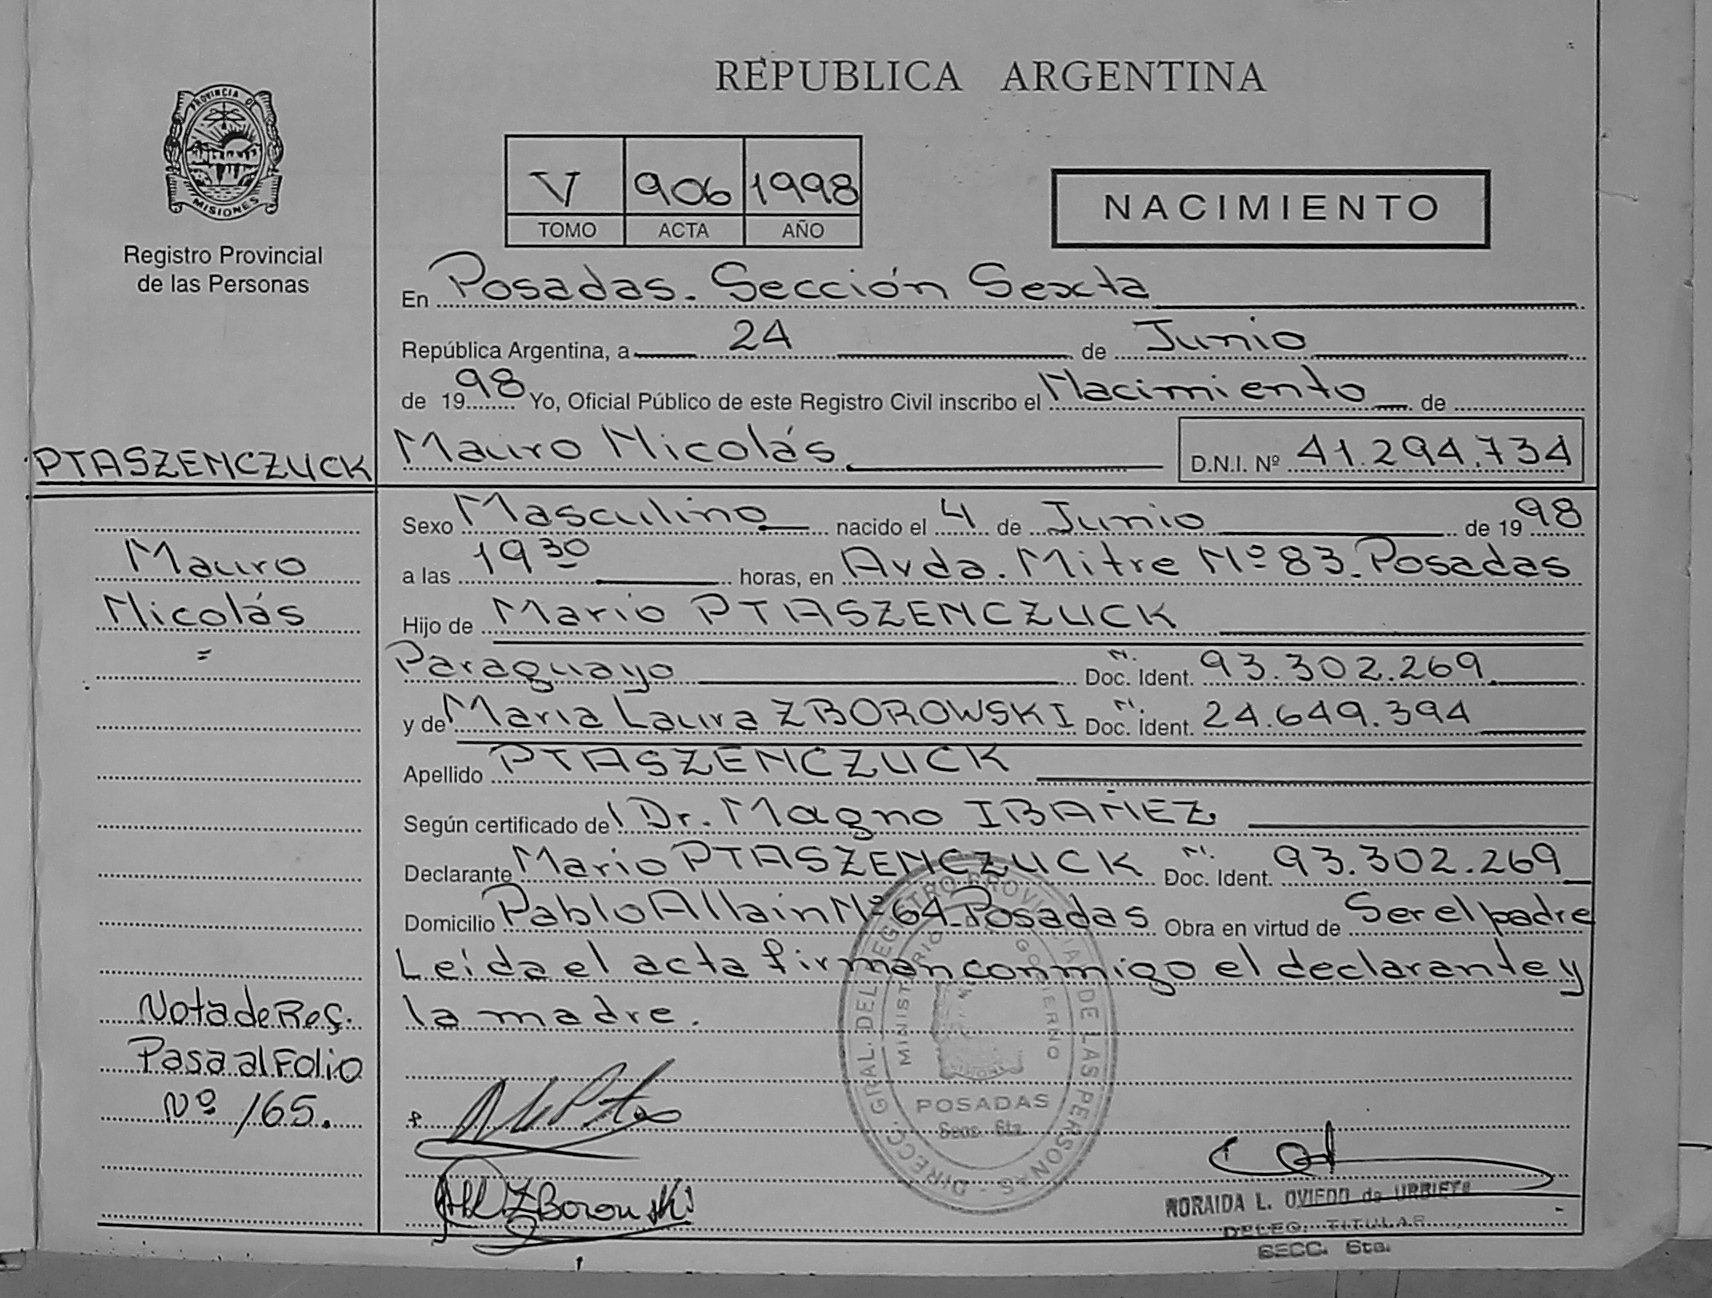 REPUBLICA ARGENTINA
PROVINCIA DE
MISIONES
Registro Provincial
de las Personas
V 906 1998
TOMO ACTA AÑO
NACIMIENTO
En Posadas. Sección Sexta
República Argentina, a 24 de Junio
de 1998 Yo, Oficial Público de este Registro Civil inscribo el Nacimiento de
PTASZENCZUCK
Mauro Nicolás D.N.I. Nº 41.294.734
Sexo Masculino nacido el 4 de Junio de 1998
Mauro
a las 19 30 horas, en Avda. Mitre Nº 83. Posadas
Nicolás
=
Hijo de Mario PTASZENCZUCK
Paraguayo N. Doc. Ident. 93.302.269
y de Maria Laura ZBOROWSKI N. Doc. Ident. 24.649.394
Apellido PTASZENCZUCK
Según certificado del Dr. Magno IBAÑEZ
Declarante Mario PTASZENCZUCK N. Doc. Ident. 93.302.269
Domicilio Pablo Allain Nº 64. Posadas Obra en virtud de Ser el padre
Leída el acta firman conmigo el declarante y
la madre.
Nota de Ref.
Pasa al Folio
Nº 165.
DIRECC. GRAL. DEL REGISTRO PROVINCIAL DE LAS PERSONAS
MINISTERIO DE GOBIERNO
POSADAS
Secc. 6ta
ZBorowski
NORAIDA L. OVIEDO de URRIETA
DELEG. TITULAR
SECC. 6ta.